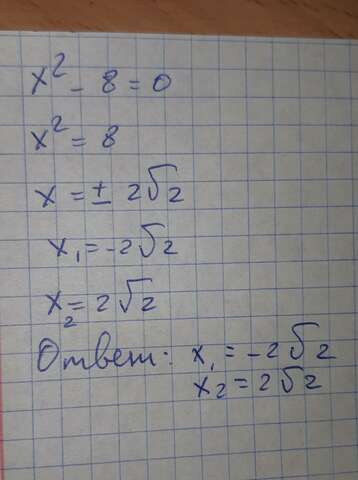 x² - 8 = 0
x² = 8
x = ± 2√2
x₁ = -2√2
x₂ = 2√2
Ответ: x₁ = -2√2
x₂ = 2√2